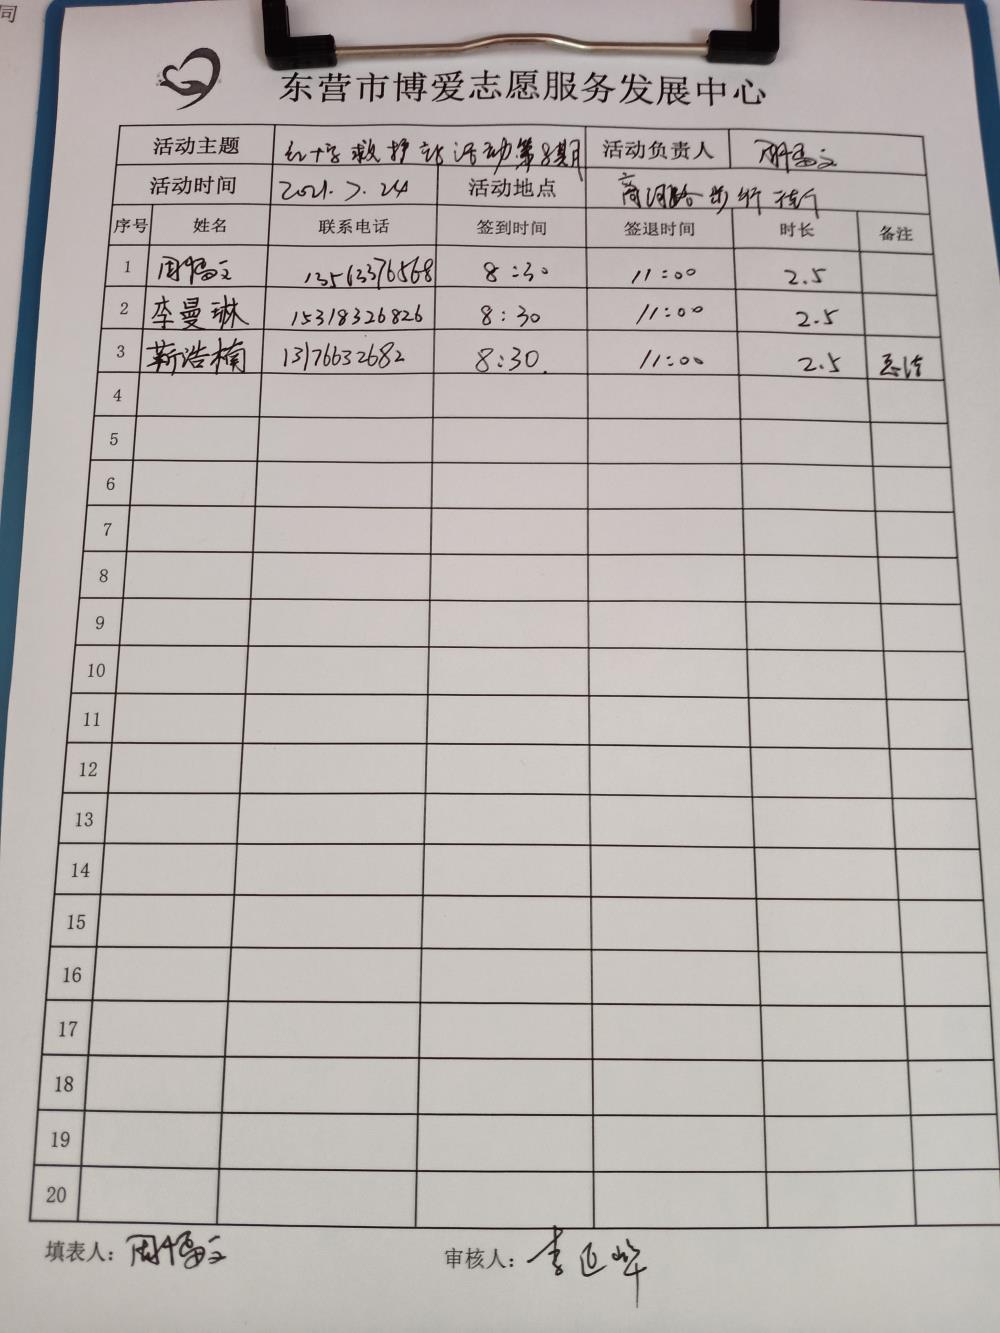 同
东营市博爱志愿服务发展中心
活动主题 红十字救护站活动第8期 活动负责人
活动时间 2021.7.24 活动地点 商河路步行街
序号 姓名 联系电话 签到时间 签退时间 时长 备注
1 13563376568 8:30 11:00 2.5
2 李曼琳 15318326826 8:30 11:00 2.5
3 靳浩楠 13176632682 8:30 11:00 2.5
4
5
6
7
8
9
10
11
12
13
14
15
16
17
18
19
20
填表人: 审核人: